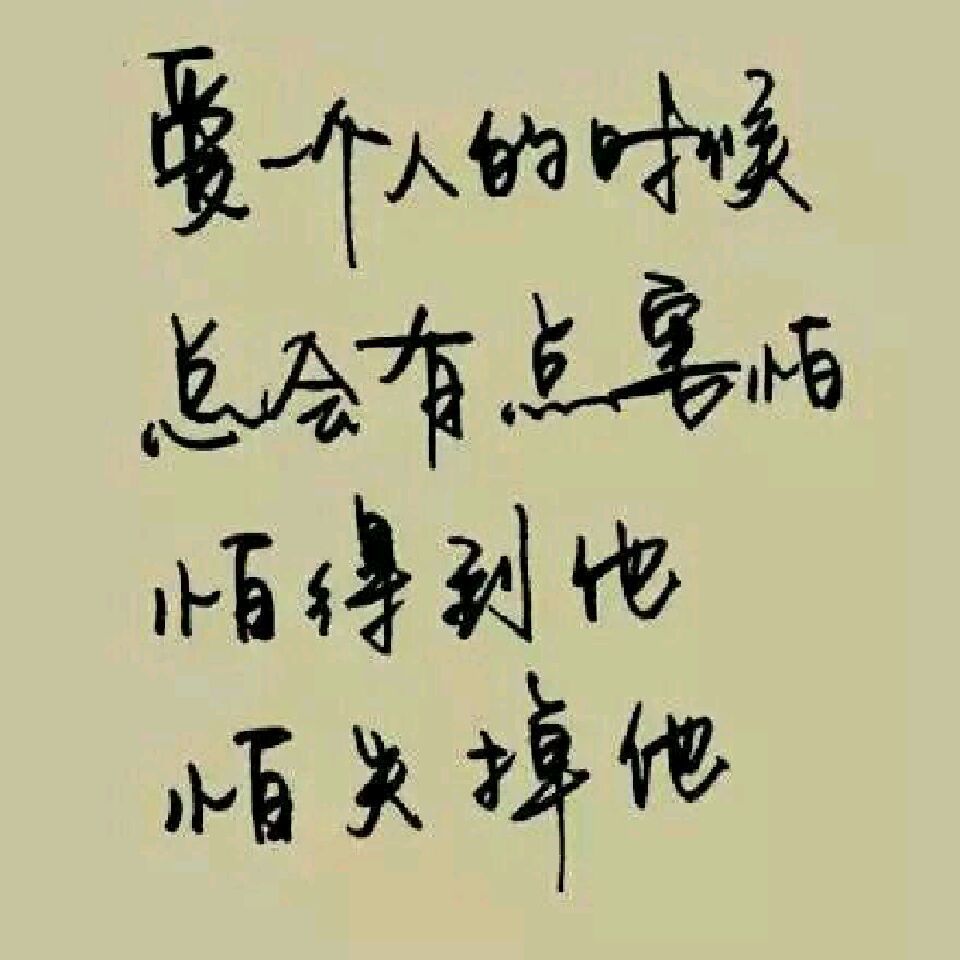 爱一个人的时候
总会有点害怕
怕得到他
怕失掉他